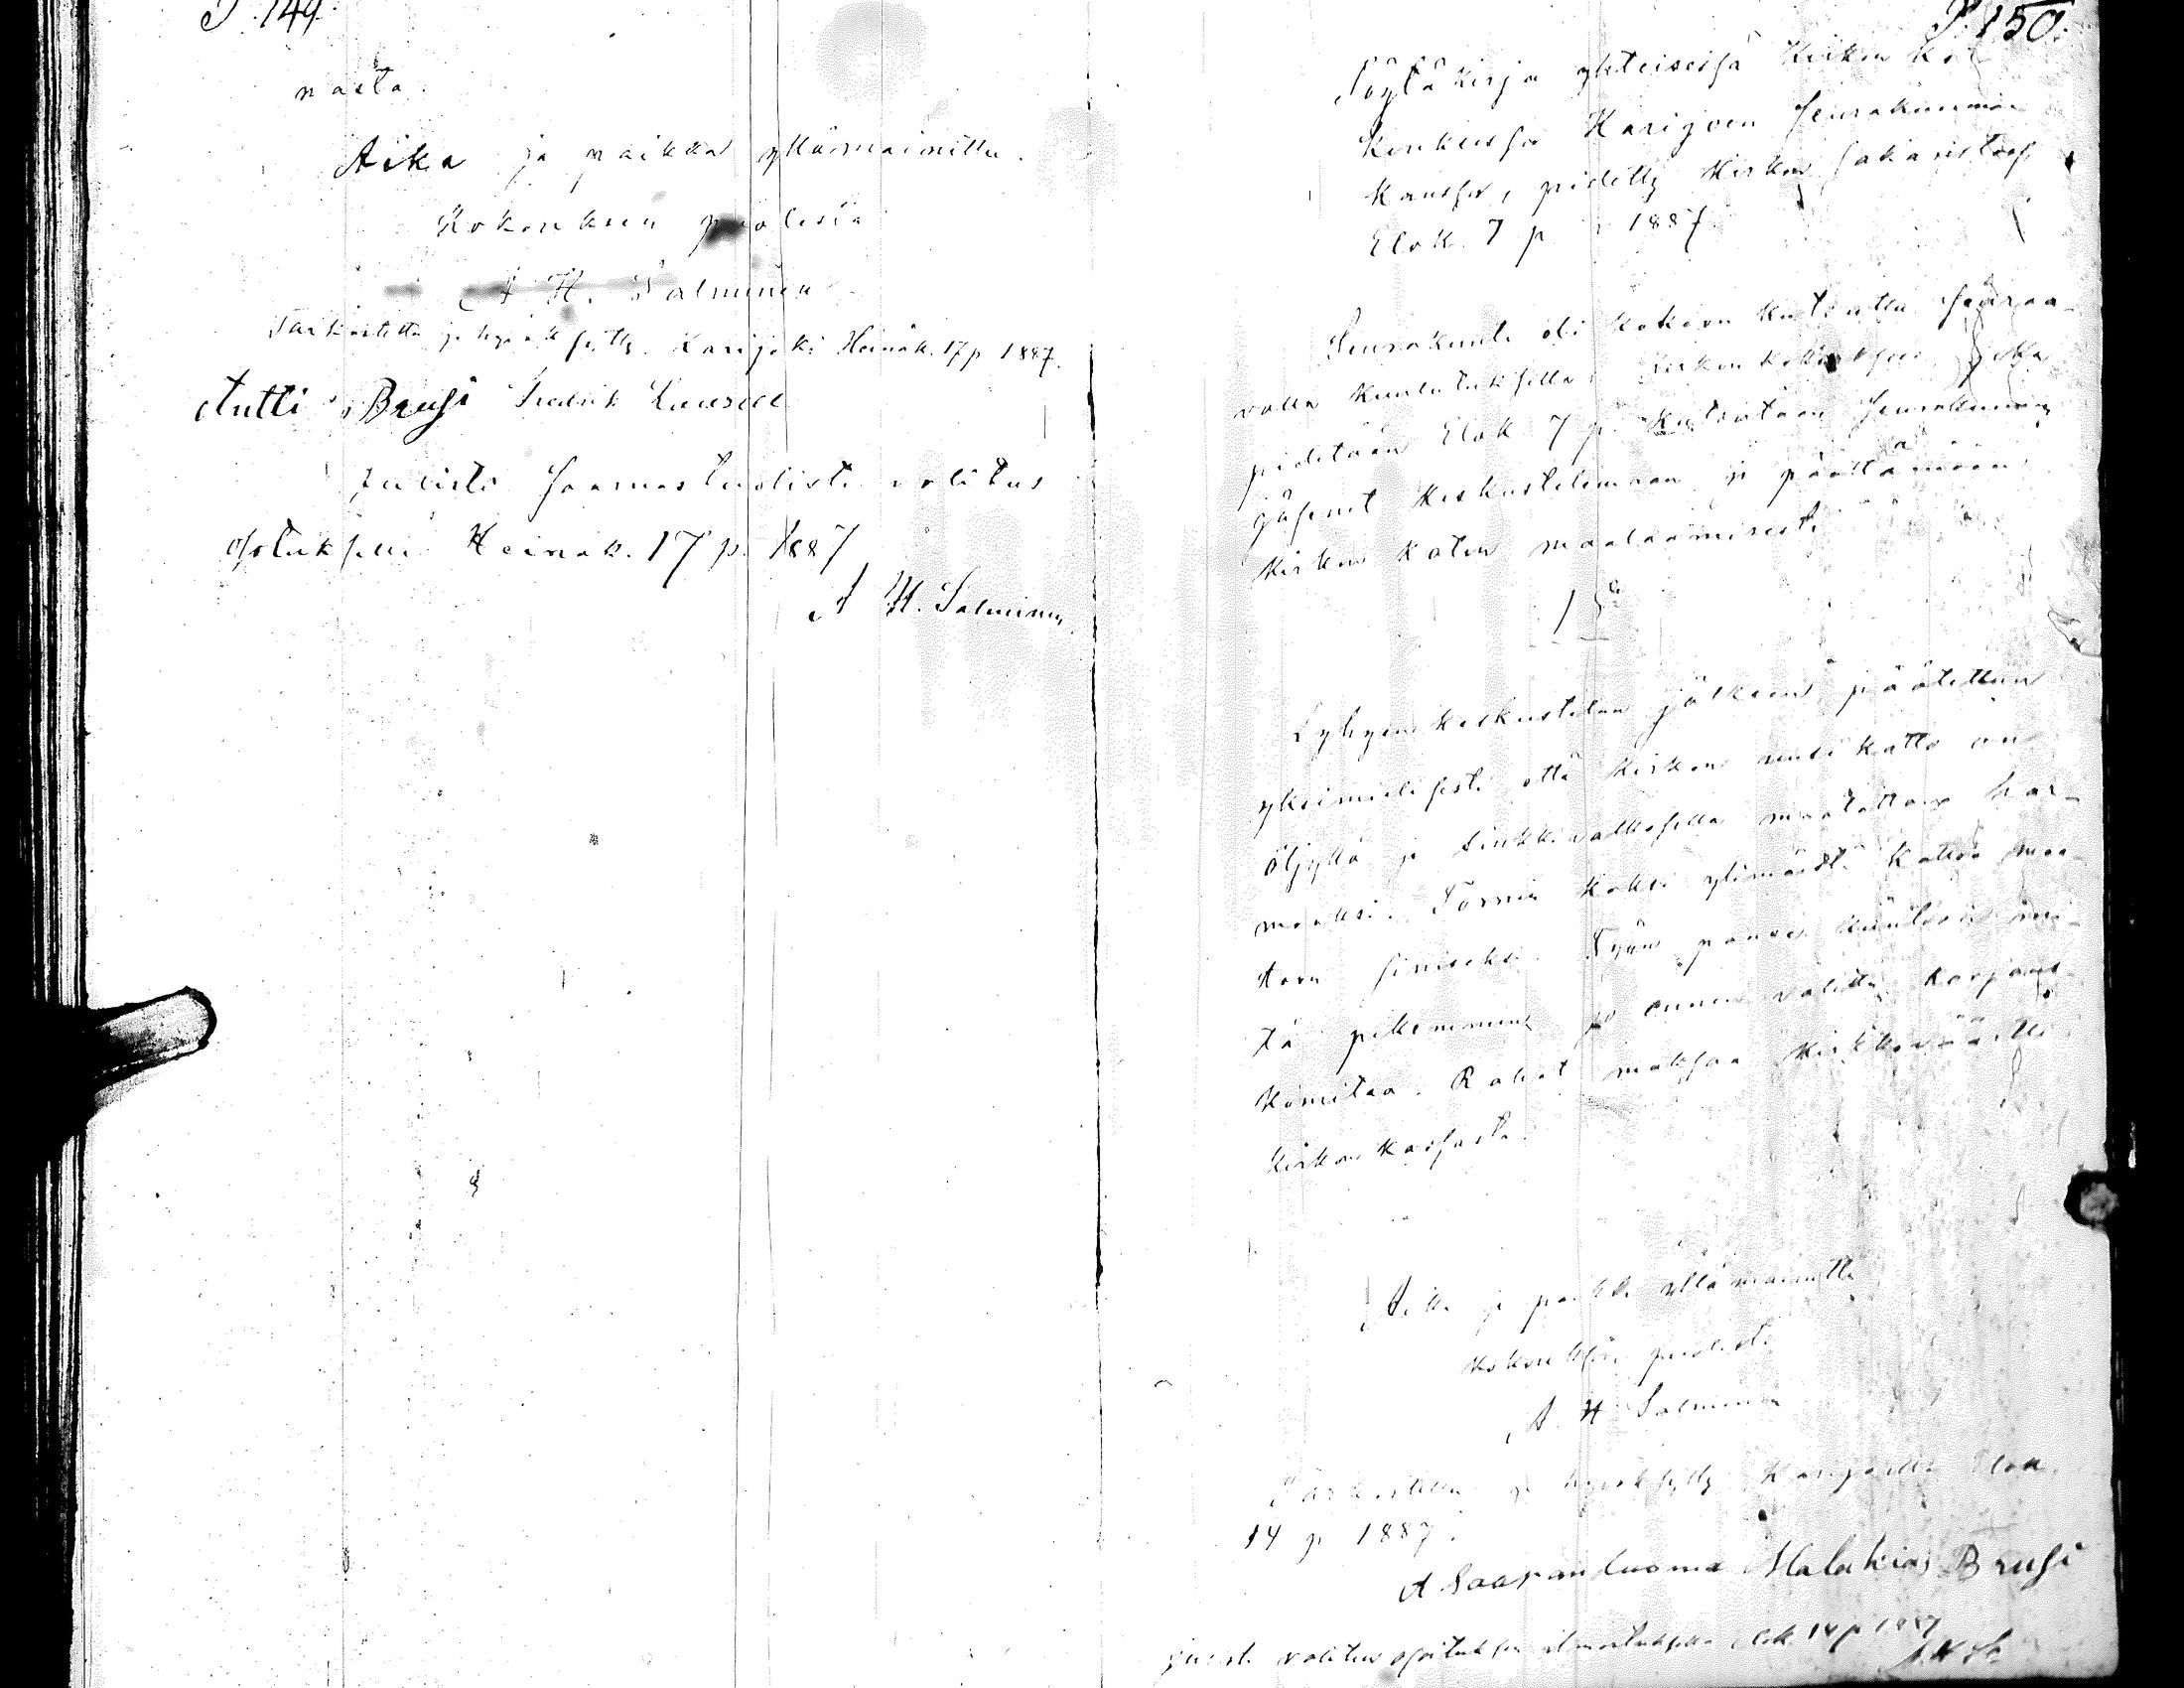 P. 149.
nasta.
Aika ja paikka yllämainittu.
Kokouksen puolesta
A H. Salminen
Tarkastettu ja hyväksytty. Karijoki Heinäk. 17 p 1887.
Antti Brusi Fredrik
Julisti Saarnastuolista valitus
osotuksella Heinäk. 17 p. 1887
A H. Salminen
P. 150.
Pöytäkirja yhteisessä Kirkon ko-
kouksessa Karijoen Seurakunnan
kanssa, pidetty Kirkon Sakaristossa
Elok. 7 p. 1887.
Seurakunta oli kokoon kutsuttu seuraa-
valla kuulutuksella: Kirkonkokoukseen, joka
pidetään Elok 7 p. kutsutaan Seurakunnan
jäsenet keskustelemaan ja päättämään
Kirkon katon maalaamisesta
1 §
Lyhyen keskustelun jälkeen päätettiin
yksimielisesti että Kirkon uusi katto on
öljyllä ja sinkkivalkosella maalattava har-
maaksi. Tornin kaksi ylimäistä kattoa maa-
taan siniseksi. Työn panee käyntöön mi-
tä pikemmin jo ennen valittu korjaus
komitea. Rahat maksaa Kirkkoväärtti
kirkon kassasta.
Aika ja paikka yllämainittu
Kokouksen puolesta
A. H Salminen
Tarkastettu ja hyväksytty Karijoella Elok.
14 p 1887.
A Saaranluoma Malakias Brusi
Julist. valitus osoituksen ilmoituksella Elok. 14 p 1887